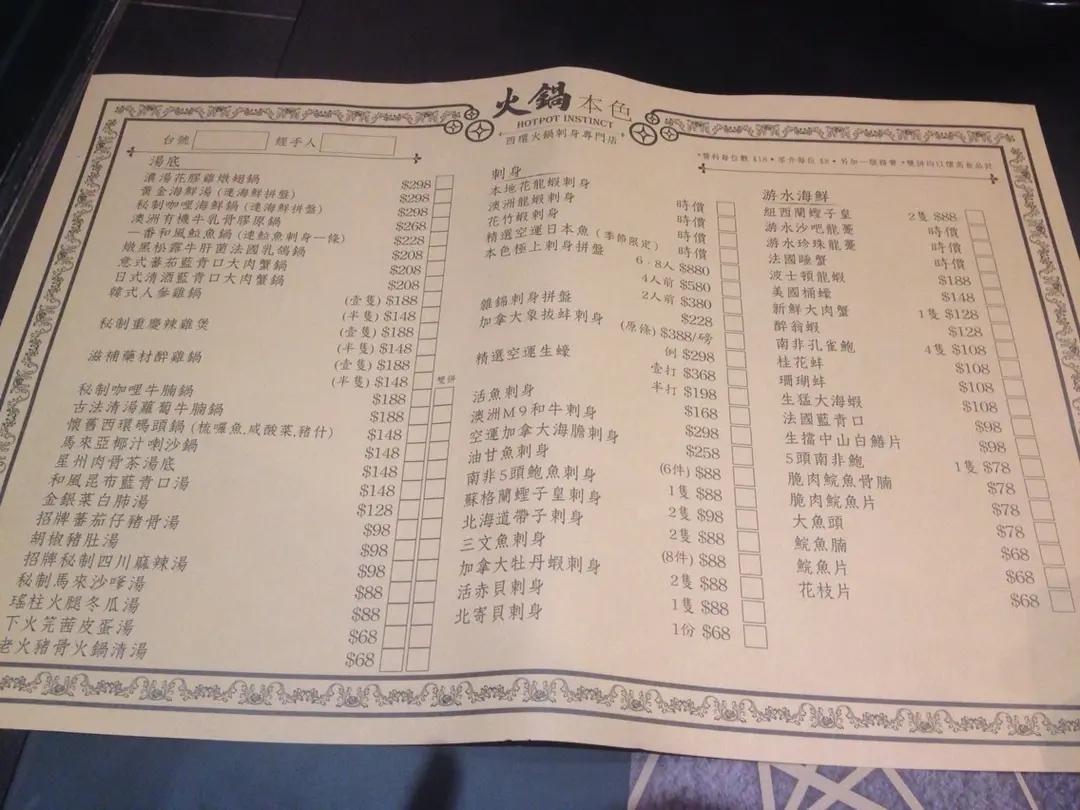 火鍋本色
HOTPOT INSTINCT
西環火鍋刺身專門店
台號 經手人
*醬料每位數 $18•茶介每位 $8•另加一服務費•雙拼均以價高者品計
湯底
濃湯花膠雞燉翅鍋 $298
黃金海鮮湯(連海鮮拼盤) $298
秘制咖哩海鮮鍋(連海鮮拼盤) $298
澳洲有機牛乳骨膠原鍋 $268
一番和風鯰魚鍋(連鯰魚刺身一條) $228
燉黑松露牛肝菌法國乳鴿鍋 $208
意式蕃茄藍青口大肉蟹鍋 $208
日式清酒藍青口大肉蟹鍋 $208
韓式人參雞鍋 (壹隻) $188
(半隻) $148
秘制重慶辣雞煲 (壹隻) $188
(半隻) $148
滋補藥材醉雞鍋 (壹隻) $188
(半隻) $148
雙拼
秘制咖哩牛腩鍋 $188
古法清湯蘿蔔牛腩鍋 $188
懷舊西環碼頭鍋(梳囉魚,咸酸菜,豬什) $148
馬來亞椰汁喇沙鍋 $148
星州肉骨茶湯底 $148
和風昆布藍青口湯 $148
金銀菜白肺湯 $128
招牌蕃茄仔豬骨湯 $98
胡椒豬肚湯 $98
招牌秘制四川麻辣湯 $98
秘制馬來沙嗲湯 $88
瑤柱火腿冬瓜湯 $88
下火芫茜皮蛋湯 $68
老火豬骨火鍋清湯 $68
刺身
本地花龍蝦刺身 時價
澳洲龍蝦刺身 時價
花竹蝦刺身 時價
精選空運日本魚(季節限定) 時價
本色極上刺身拼盤 6-8人 $880
4人前 $580
2人前 $380
雜錦刺身拼盤 $228
加拿大象拔蚌刺身 (原條) $388/磅
例 $298
精選空運生蠔 壹打 $368
半打 $198
活魚刺身 $168
澳洲M9和牛刺身 $298
空運加拿大海膽刺身 $258
油甘魚刺身 (6件) $88
南非5頭鮑魚刺身 1隻 $88
蘇格蘭蟶子皇刺身 2隻 $98
北海道帶子刺身 2隻 $88
三文魚刺身 (8件) $88
加拿大牡丹蝦刺身 2隻 $88
活赤貝刺身 1隻 $88
北寄貝刺身 1份 $68
游水海鮮
紐西蘭蟶子皇 2隻 $88
游水沙吧龍躉 時價
游水珍珠龍躉 時價
法國睡蟹 時價
波士頓龍蝦 $188
美國桶蠔 $148
新鮮大肉蟹 1隻 $128
醉翁蝦 $128
南非孔雀鮑 4隻 $108
桂花蚌 $108
珊瑚蚌 $108
生猛大海蝦 $108
法國藍青口 $98
生擋中山白鱔片 $98
5頭南非鮑 1隻 $78
脆肉鯇魚骨腩 $78
脆肉鯇魚片 $78
大魚頭 $78
鯇魚腩 $68
鯇魚片 $68
花枝片 $68